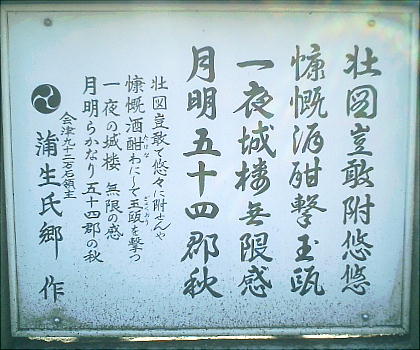 壮図豈敢附悠悠
慷慨酒酣撃玉甌
一夜城楼無限感
月明五十四郡秋
壮図豈敢て悠々に附せんや
慷慨酒酣わにして玉甌を撃つ
たけな
ぎょくおう
一夜の城楼 無限の感
月明らかなり 五十四郡の秋
会津九十二万石領主
蒲生氏郷 作